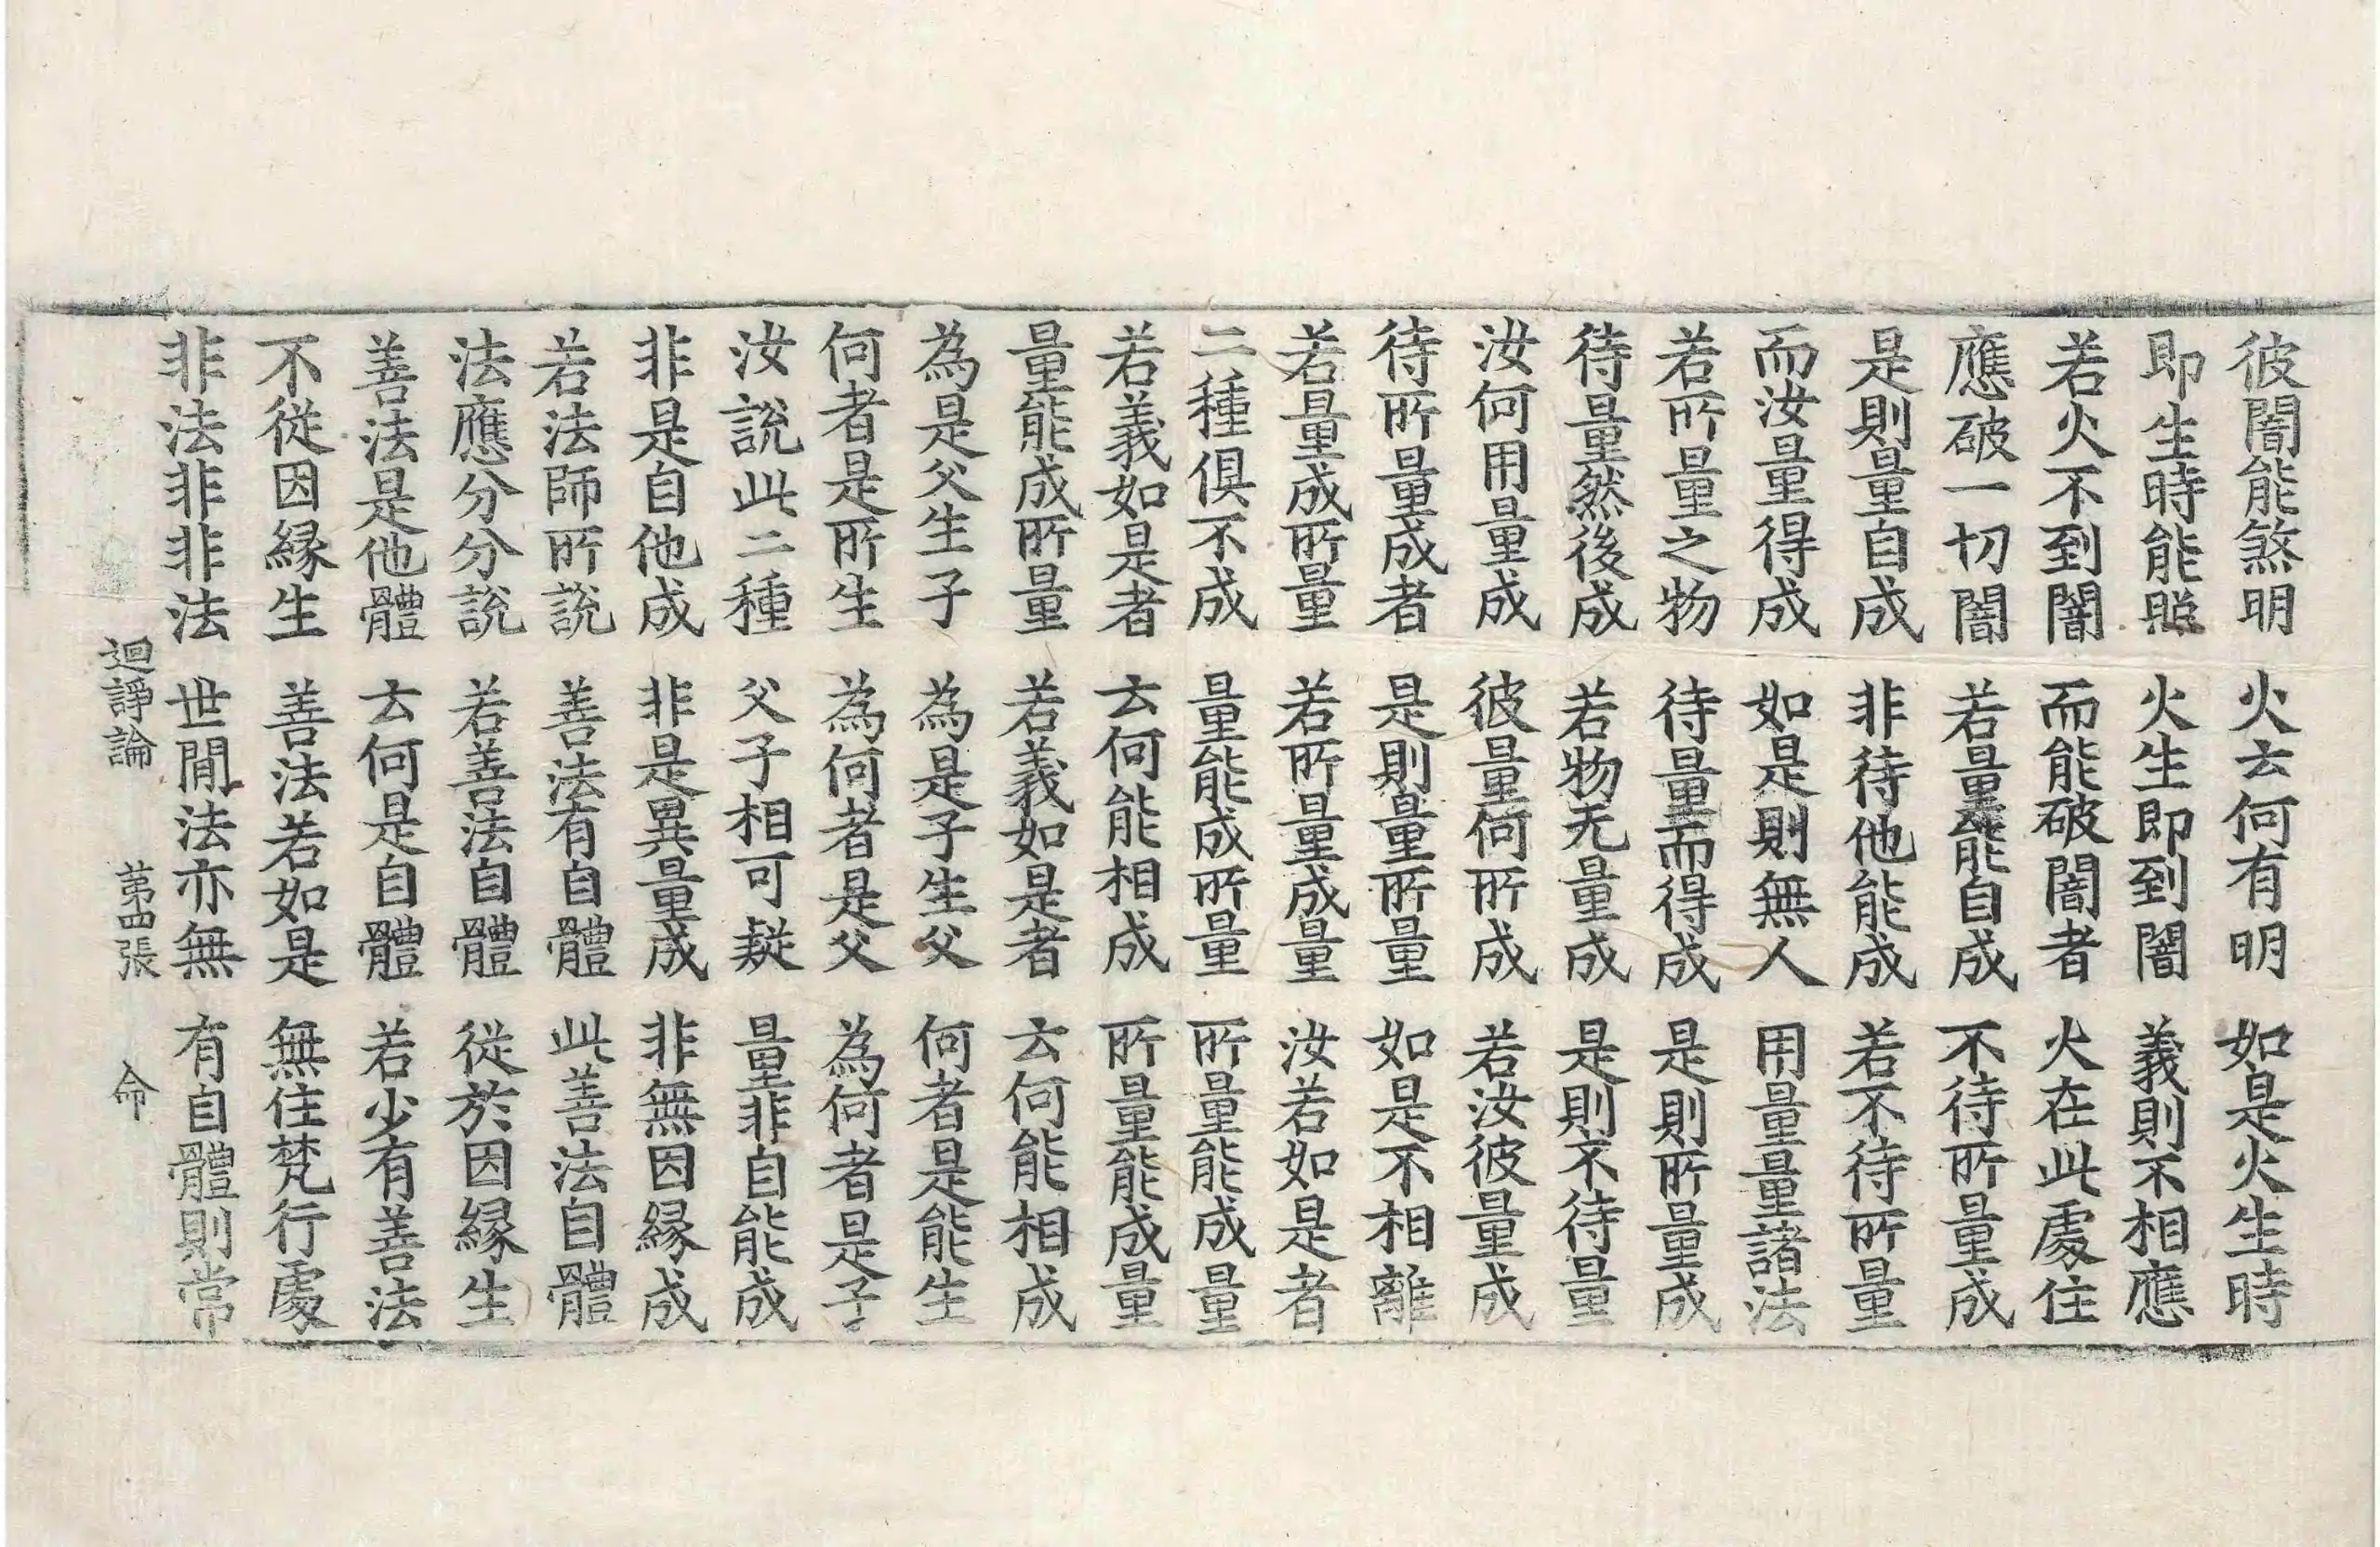 彼闇能煞明　火去何有明　如是火生時
即生時能照　火生即到闇　義則不相應
若火不到闇　而能破闇者　火在此處住
應破一切闇　若量能自成　不待所量成
是則量自成　非待他能成　若不待所量
而汝量得成　如是則無人　用量量諸法
若所量之物　待量而得成　是則所量成
待量然後成　若物无量成　是則不待量
汝何用量成　彼量何所成　若汝彼量成
待所量成者　是則量所量　如是不相離
若量成所量　若所量成量　汝若如是者
二種俱不成　量能成所量　所量能成量
若義如是者　去何能相成　所量能成量
量能成所量　若義如是者　去何能相成
為是父生子　為是子生父　何者是能生
何者是所生　為何者是父　為何者是子
汝說此二種　父子相可疑　量非自能成
非是自他成　非是異量成　非無因緣成
若法師所說　善法有自體　此善法自體
法應分分說　若善法自體　從於因緣生
善法是他體　去何是自體　若少有善法
不從因緣生　善法若如是　無住梵行處
非法非非法　世間法亦無　有自體則常
迴諍論　苐四張　命